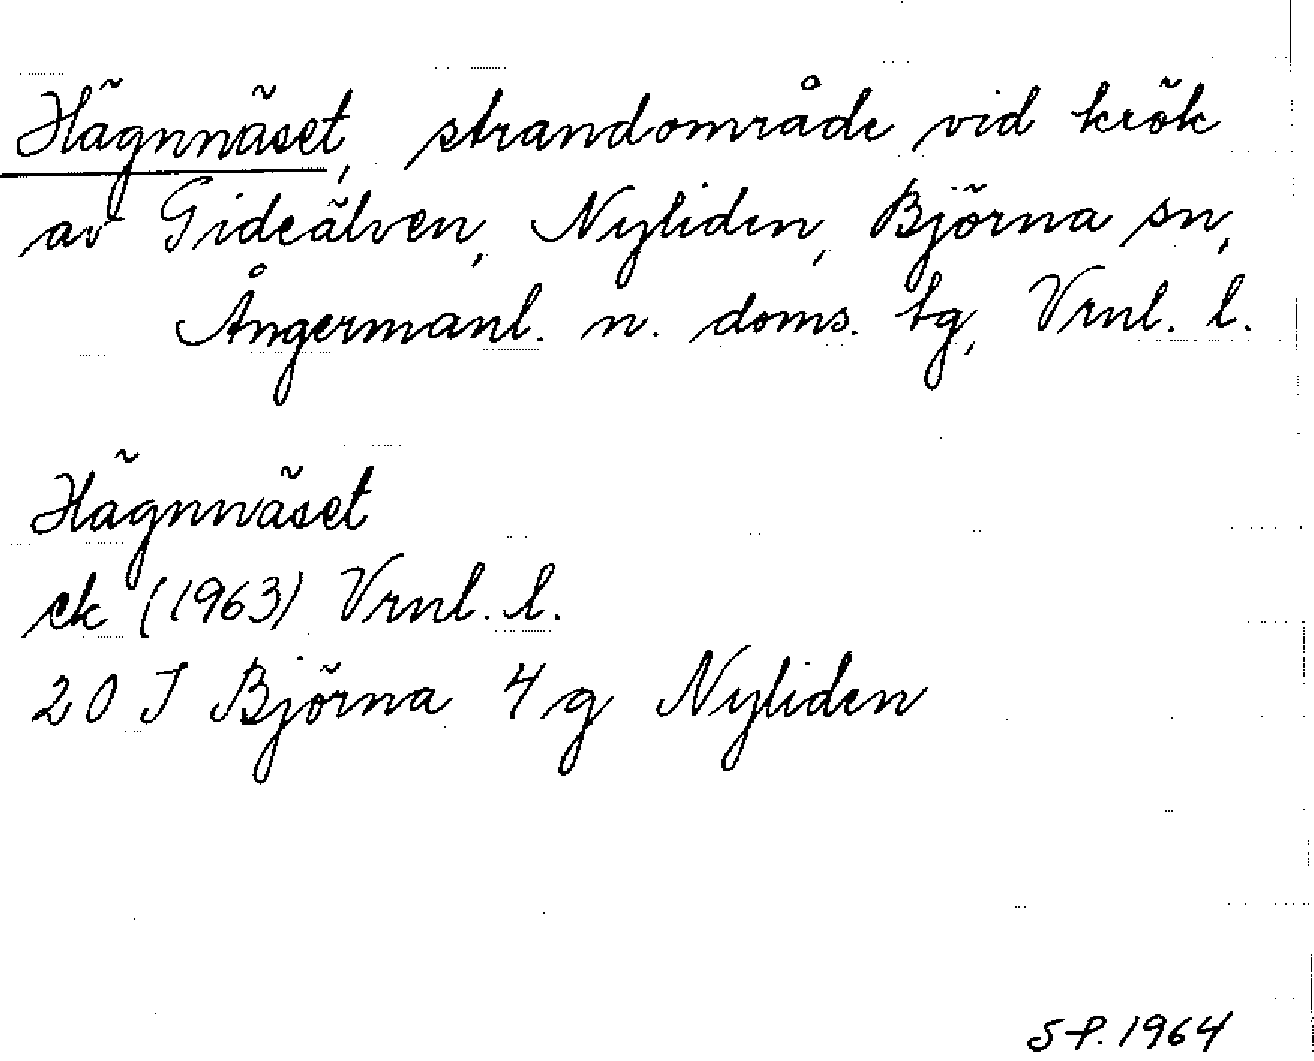 Hägnnäset, strandområde vid krök
av Gideälven, Nyliden, Björna sn,
Ångermanl. n. doms. tg, Vrnl. l.
Hägnnäset
ek (1963) Vrnl. l.
20 J Björna 4g Nyliden
SP. 1964